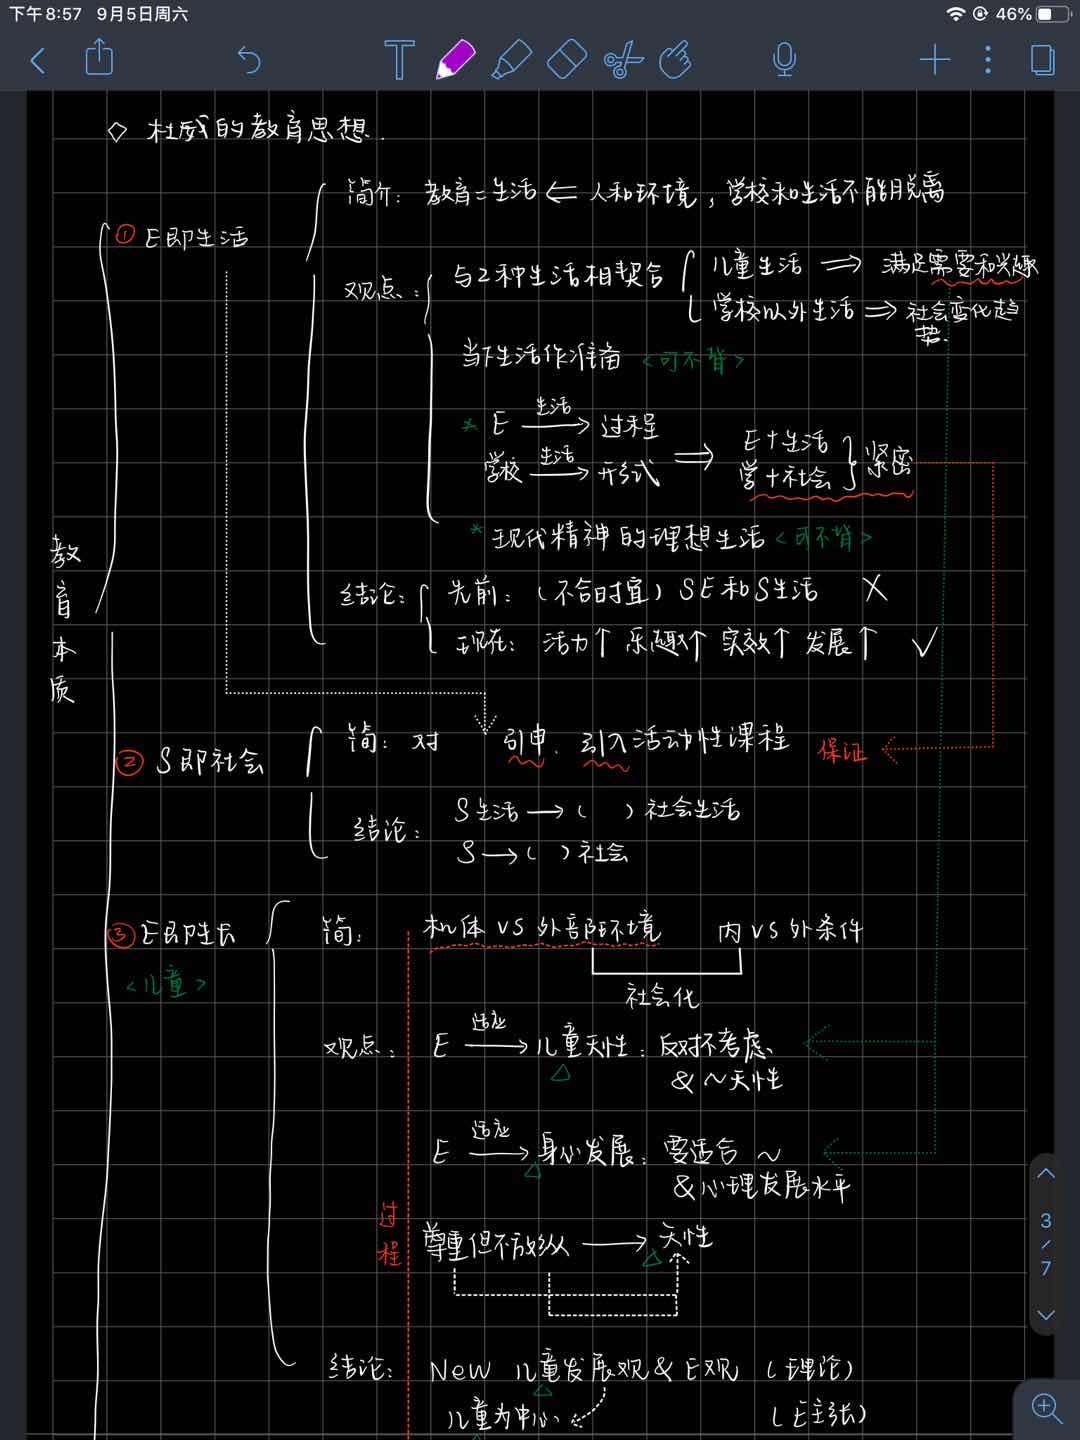 下午8:57 9月5日周六 46%
◇ 杜威的教育思想.
简介: 教育=生活 ⇐ 人和环境，学校和生活不能脱离
① E即生活
观点: 与2种生活相契合 儿童生活 ⇒ 满足需要和兴趣
学校以外生活 ⇒ 社会变化趋势.
当下生活作准备 <可不背>
* E 生活→ 过程
学校 生活→ 形式 ⇒ E+生活 学+社会 } 紧密
* 现代精神的理想生活 <可不背>
教育本质
结论: 先前: (不合时宜) SE和S生活 X
现在: 活力↑ 乐趣↑ 实效↑ 发展↑ √
② S即社会
简: 对 引申. 引入活动性课程 保证
结论: S生活 → ( ) 社会生活
S → ( ) 社会
③ E即生长
<儿童>
简: 机体 VS 外部环境 内 VS 外条件
社会化
观点: E 适应→ 儿童天性: 反对不考虑
& ~天性
E 适应→ 身心发展: 要适合 ~
& 心理发展水平
过程
尊重但不放纵 → 天性
3/7
结论: New 儿童发展观 & E观 (理论)
儿童为中心 (E主张)